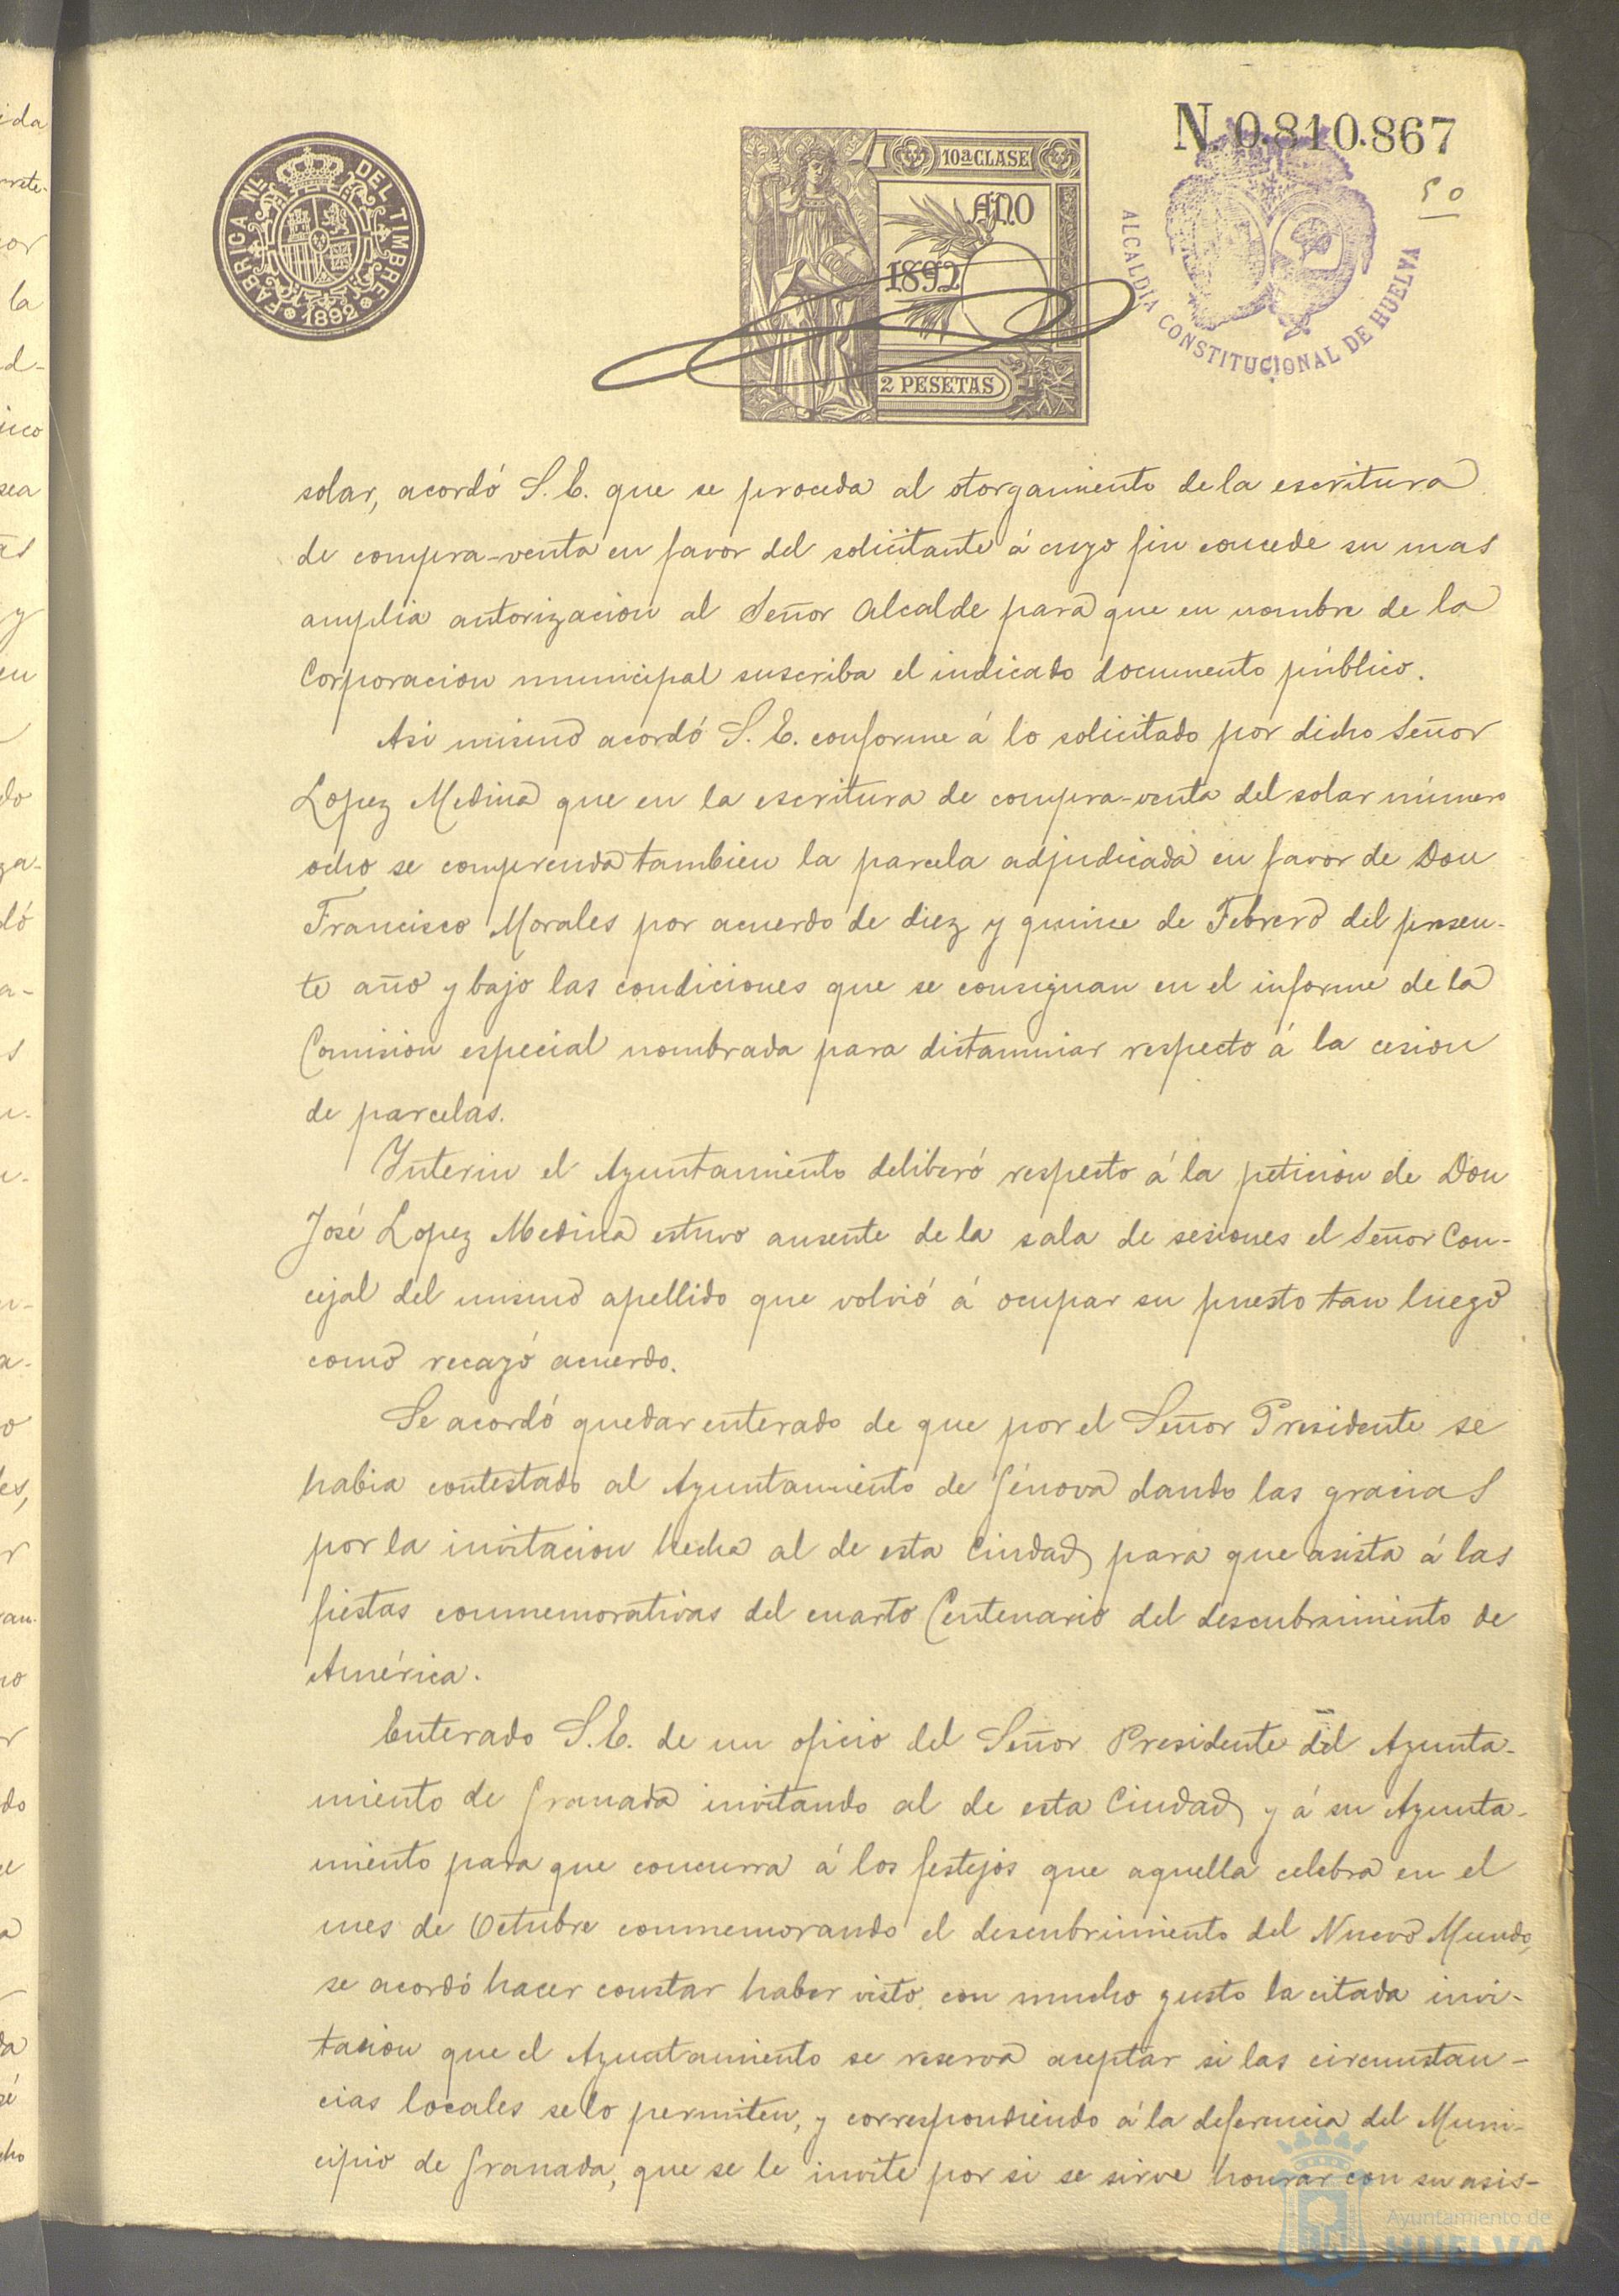 FABRICA NL. DEL TIMBRE
1892
10ª CLASE
AÑO
1892
2 PESETAS
N. 0.810.867
50
ALCALDÍA CONSTITUCIONAL DE HUELVA
solar, acordó S. E. que se proceda al otorgamiento de la escritura
de compra-venta en favor del solicitante á cuyo fin concede su mas
amplia autorizacion al Señor Alcalde para que en nombre de la
Corporacion municipal suscriba el indicado documento público.
Asi mismo acordó S. E. conforme á lo solicitado por dicho Señor
Lopez Medina que en la escritura de compra-venta del solar número
ocho se comprenda tambien la parcela adjudicada en favor de Don
Francisco Morales por acuerdo de diez y quince de Febrero del presen-
te año y bajo las condiciones que se consignan en el informe de la
Comision especial nombrada para dictaminar respecto á la cesion
de parcelas.
Interin el Ayuntamiento deliberó respecto á la peticion de Don
José Lopez Medina estuvo ausente de la sala de sesiones el Señor Con-
cejal del mismo apellido que volvió á ocupar su puesto tan luego
como recayó acuerdo.
Se acordó quedar enterado de que por el Señor Presidente se
habia contestado al Ayuntamiento de Génova dando las gracias
por la invitacion hecha al de esta Ciudad para que asista á las
fiestas conmemorativas del cuarto Centenario del descubrimiento de
América.
Enterado S. E. de un oficio del Señor Presidente del Ayunta-
miento de Granada invitando al de esta Ciudad y á su Ayunta-
miento para que concurra á los festejos que aquella celebra en el
mes de Octubre conmemorando el descubrimiento del Nuevo Mundo,
se acordó hacer constar haber visto con mucho gusto la citada invi-
tacion que el Ayuntamiento se reserva aceptar si las circunstan-
cias locales se lo permiten, y correspondiendo á la deferencia del Muni-
cipio de Granada, que se le invite por si se sirve honrar con su asis-
Ayuntamiento de
HUELVA